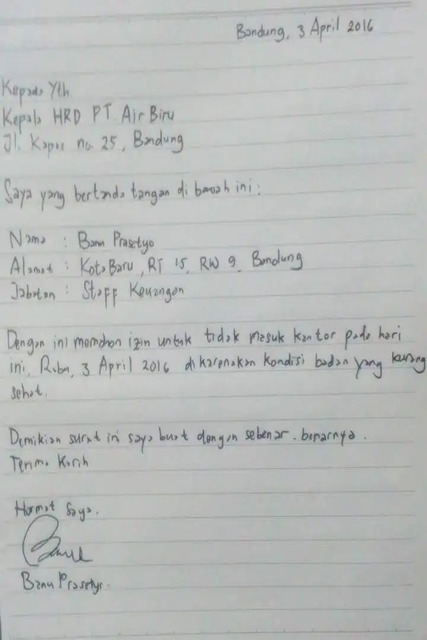 Bandung, 3 April 2016
Kepada Yth
Kepala HRD PT Air Biru
Jl. Kapas no 25, Bandung
Saya yang bertanda tangan di bawah ini :
Nama : Banu Prasetyo
Alamat : Kota Baru, RT 15, RW 9, Bandung
Jabatan : Staff Keuangan
Dengan ini memohon izin untuk tidak masuk kantor pada hari
ini, Rabu, 3 April 2016 dikarenakan kondisi badan yang kurang
sehat.
Demikian surat ini saya buat dengan sebenar-benarnya.
Terima Kasih
Hormat Saya.
Banu Prasetyo.